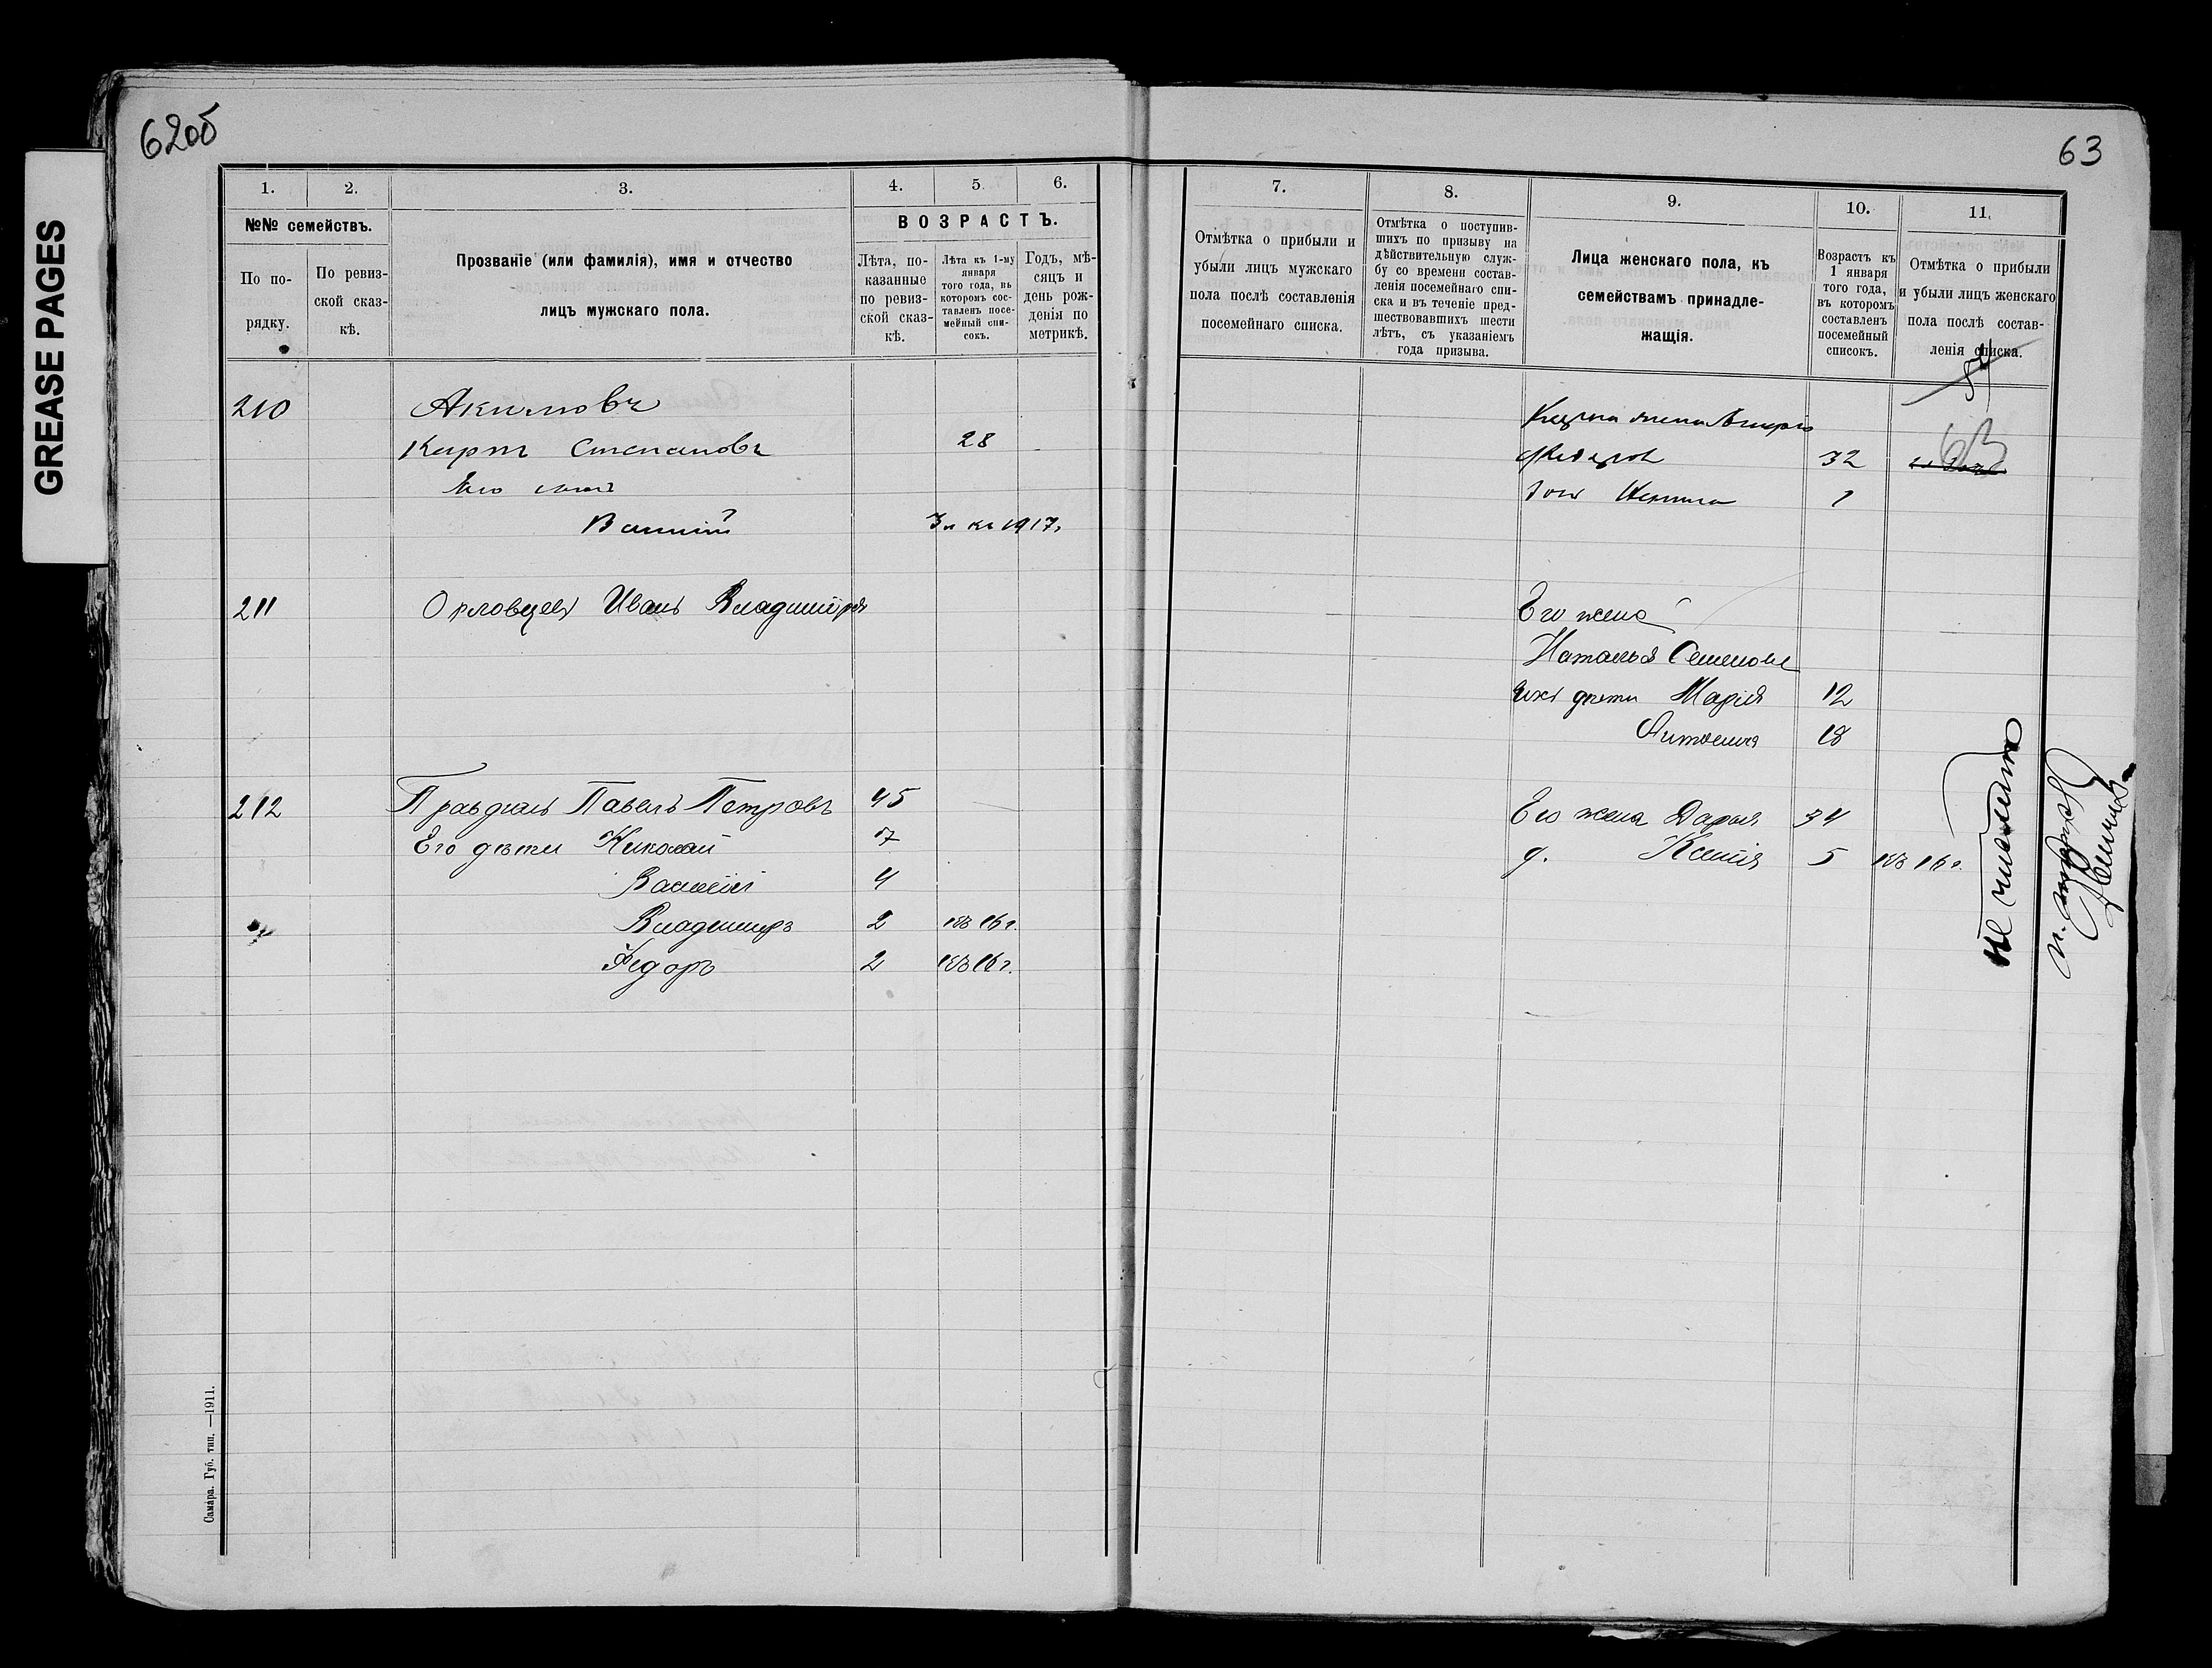 GREASE PAGES
62об
63
1.
2.
3.
4.
5.
6.
№№ семействъ.
ВОЗРАСТЪ.
По по-
рядку.
По ревиз-
ской сказ-
кѣ.
Прозваніе (или фамилія), имя и отчество
лицъ мужскаго пола.
Лѣта, по-
казанные
по ревиз-
ской сказ-
кѣ.
Лѣта къ 1-му
января
того года, въ
которомъ сос-
тавленъ посе-
мейный спи-
сокъ.
Годъ, мѣ-
сяцъ и
день рож-
денія по
метрикѣ.
7.
8.
9.
10.
11.
Отмѣтка о прибыли и
убыли лицъ мужскаго
пола послѣ составленія
посемейнаго списка.
Отмѣтка о поступив-
шихъ по призыву на
дѣйствительную служ-
бу со времени состав-
ленія посемейнаго спи-
ска и въ теченіе пред-
шествовавшихъ шести
лѣтъ, съ указаніемъ
года призыва.
Лица женскаго пола, къ
семействамъ принадле-
жащія.
Возрастъ къ
1 января
того года,
въ которомъ
составленъ
посемейный
списокъ.
Отмѣтка о прибыли
и убыли лицъ женскаго
пола послѣ состав-
ленія списка.
210 Акимовъ
Степановъ 28
32
Его сынъ
1
3 л къ 1917.
211 Иванъ Владиміров
Его жена
Наталья Семенова
ихъ дѣти Марія 12
18
212 Павелъ Петровъ 45
Его жена Дарья 34
Его дѣти Николай 7
д. Ксенія 5 16 г.
Василій 4
Владиміръ 2 16 г.
Федоръ 2 16 г.
не числится
Самара. Губ. тип. —1911.